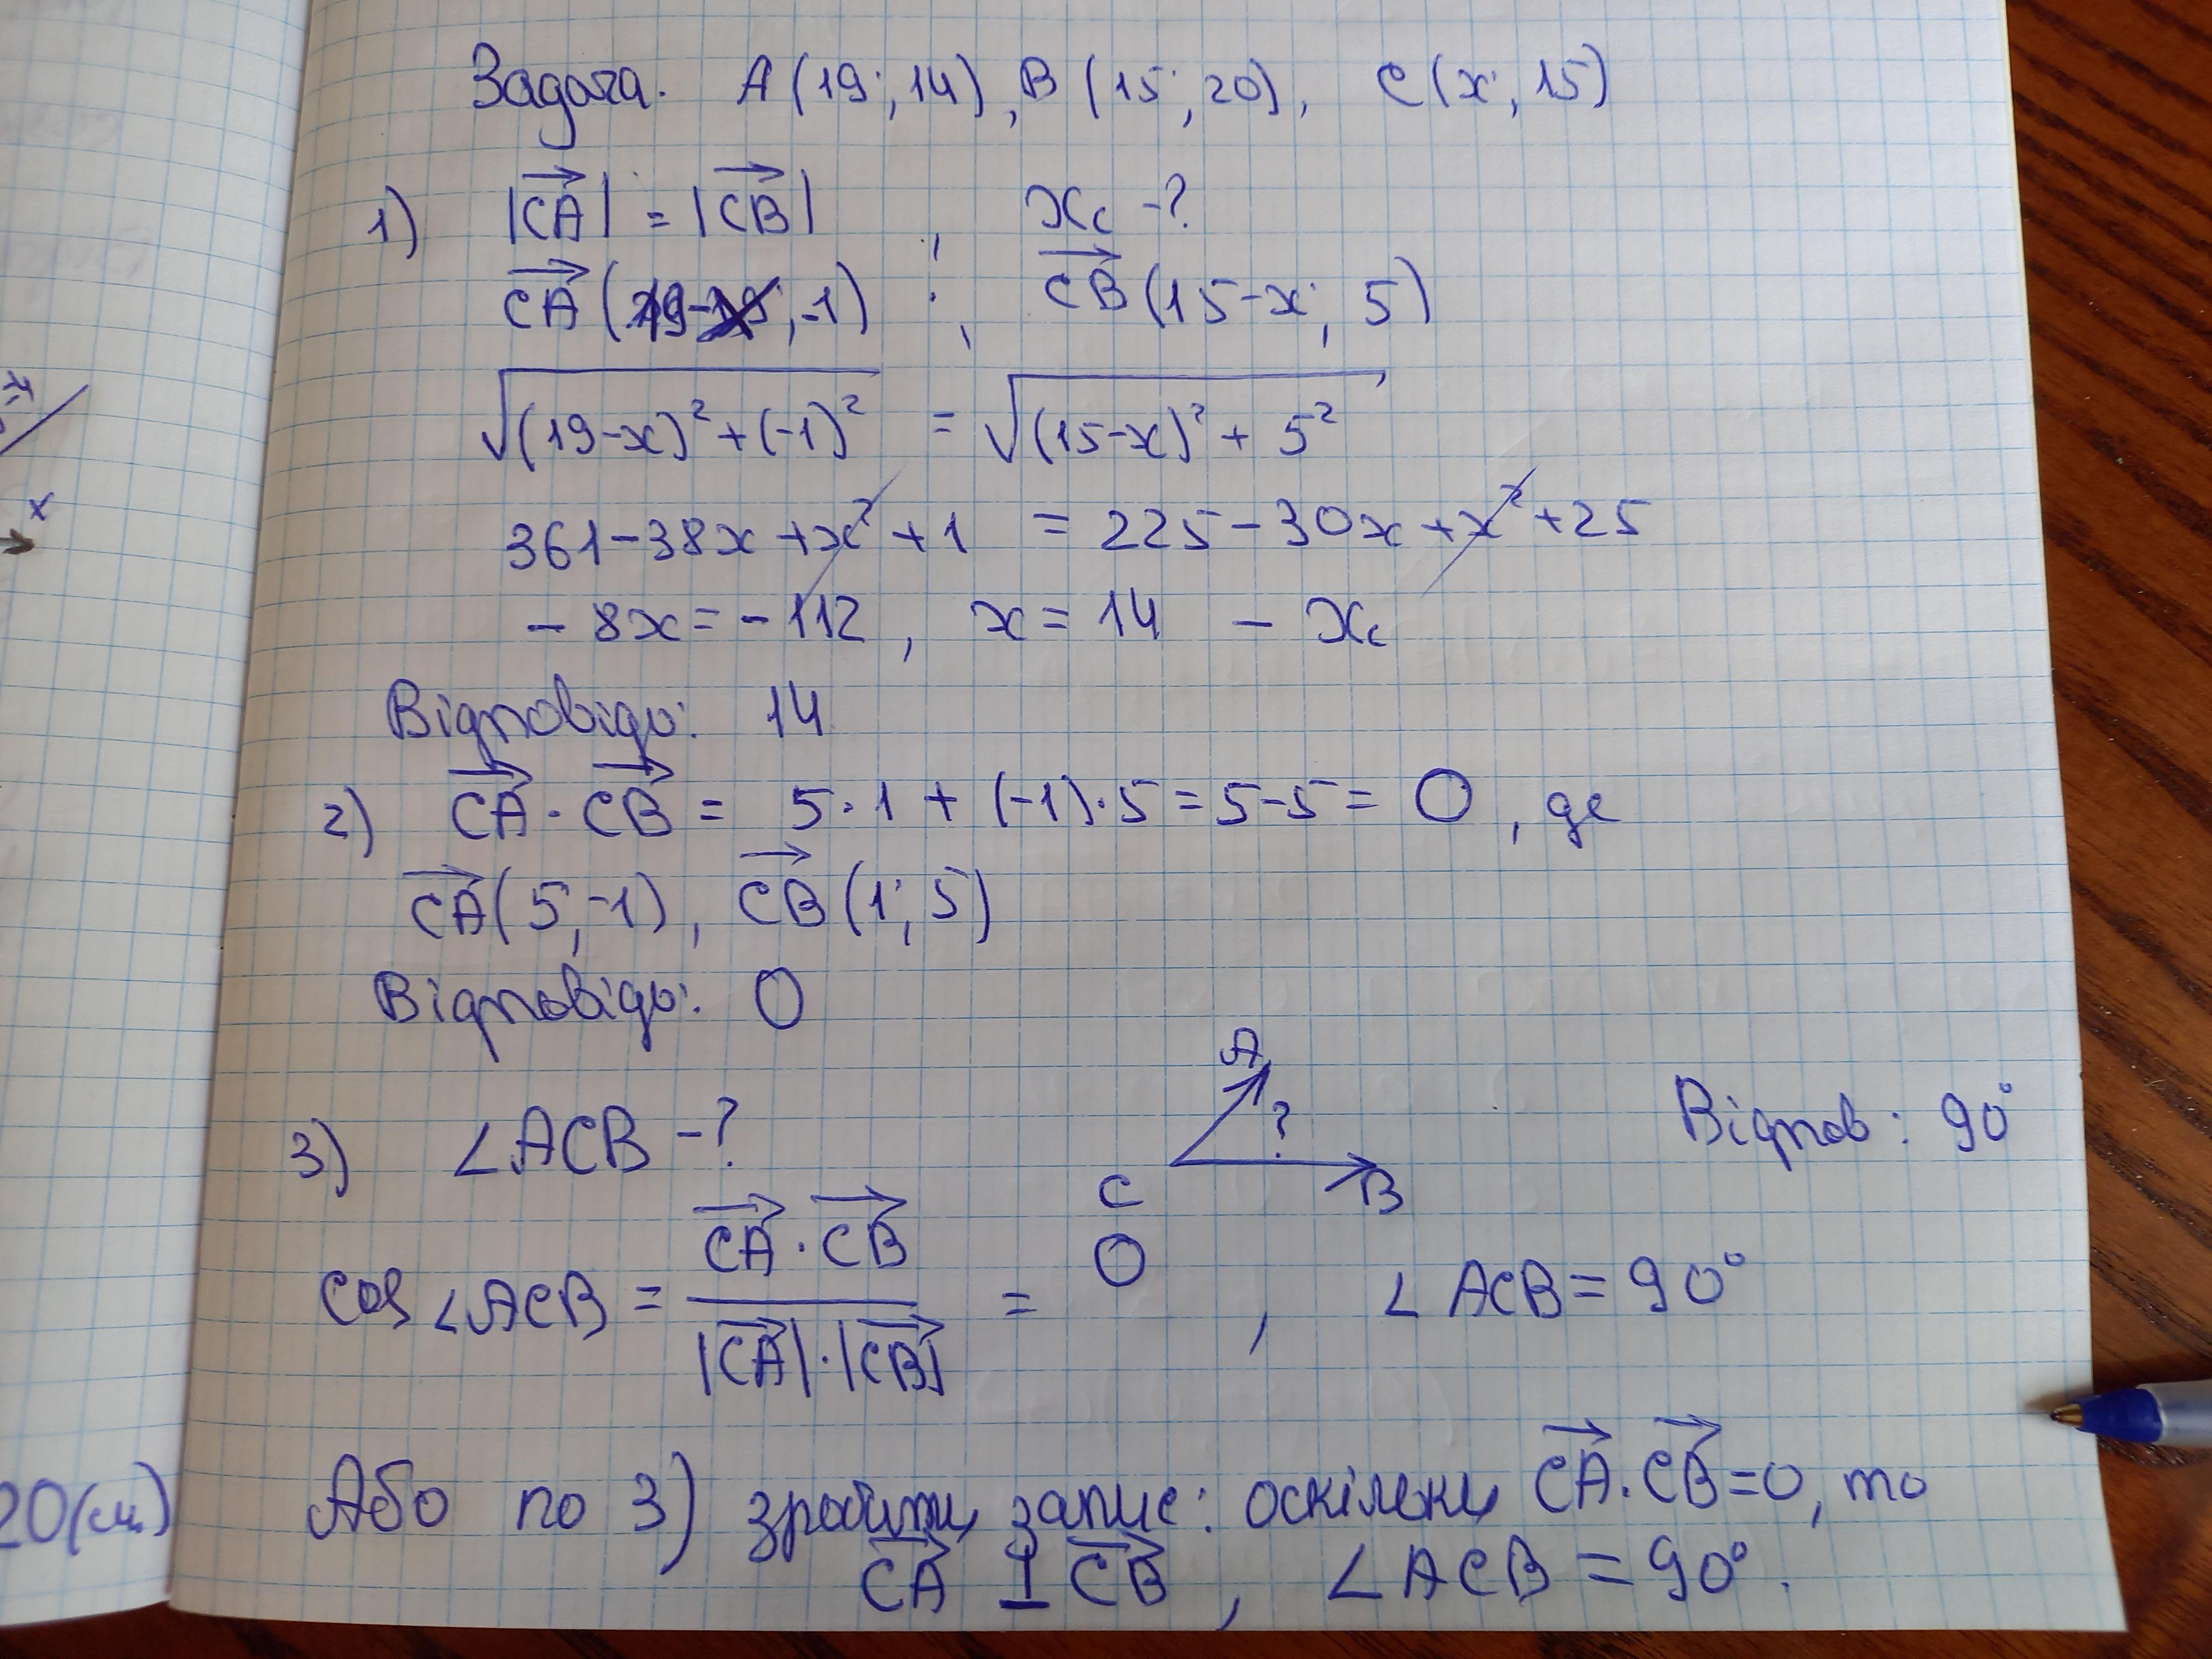 Задача. A (19; 14), B (15; 20), C (x; 15)
1) |CA| = |CB| , xc -?
CA (19-x; -1) , CB (15-x; 5)
√(19-x)² + (-1)² = √(15-x)² + 5²
361 - 38x + x² + 1 = 225 - 30x + x² + 25
- 8x = - 112 , x = 14 - xc
Відповідь: 14
2) CA · CB = 5·1 + (-1)·5 = 5-5 = 0 , де
CA (5; -1) , CB (1; 5)
Відповідь: 0
3) ∠ACB -?
A
?
C
B
Відпов: 90°
cos ∠ACB = CA · CB / |CA|·|CB| = 0 , ∠ACB = 90°
Або по 3) зробити запис: оскільки CA · CB = 0, то
CA ⊥ CB , ∠ACB = 90°.
x
20(см)